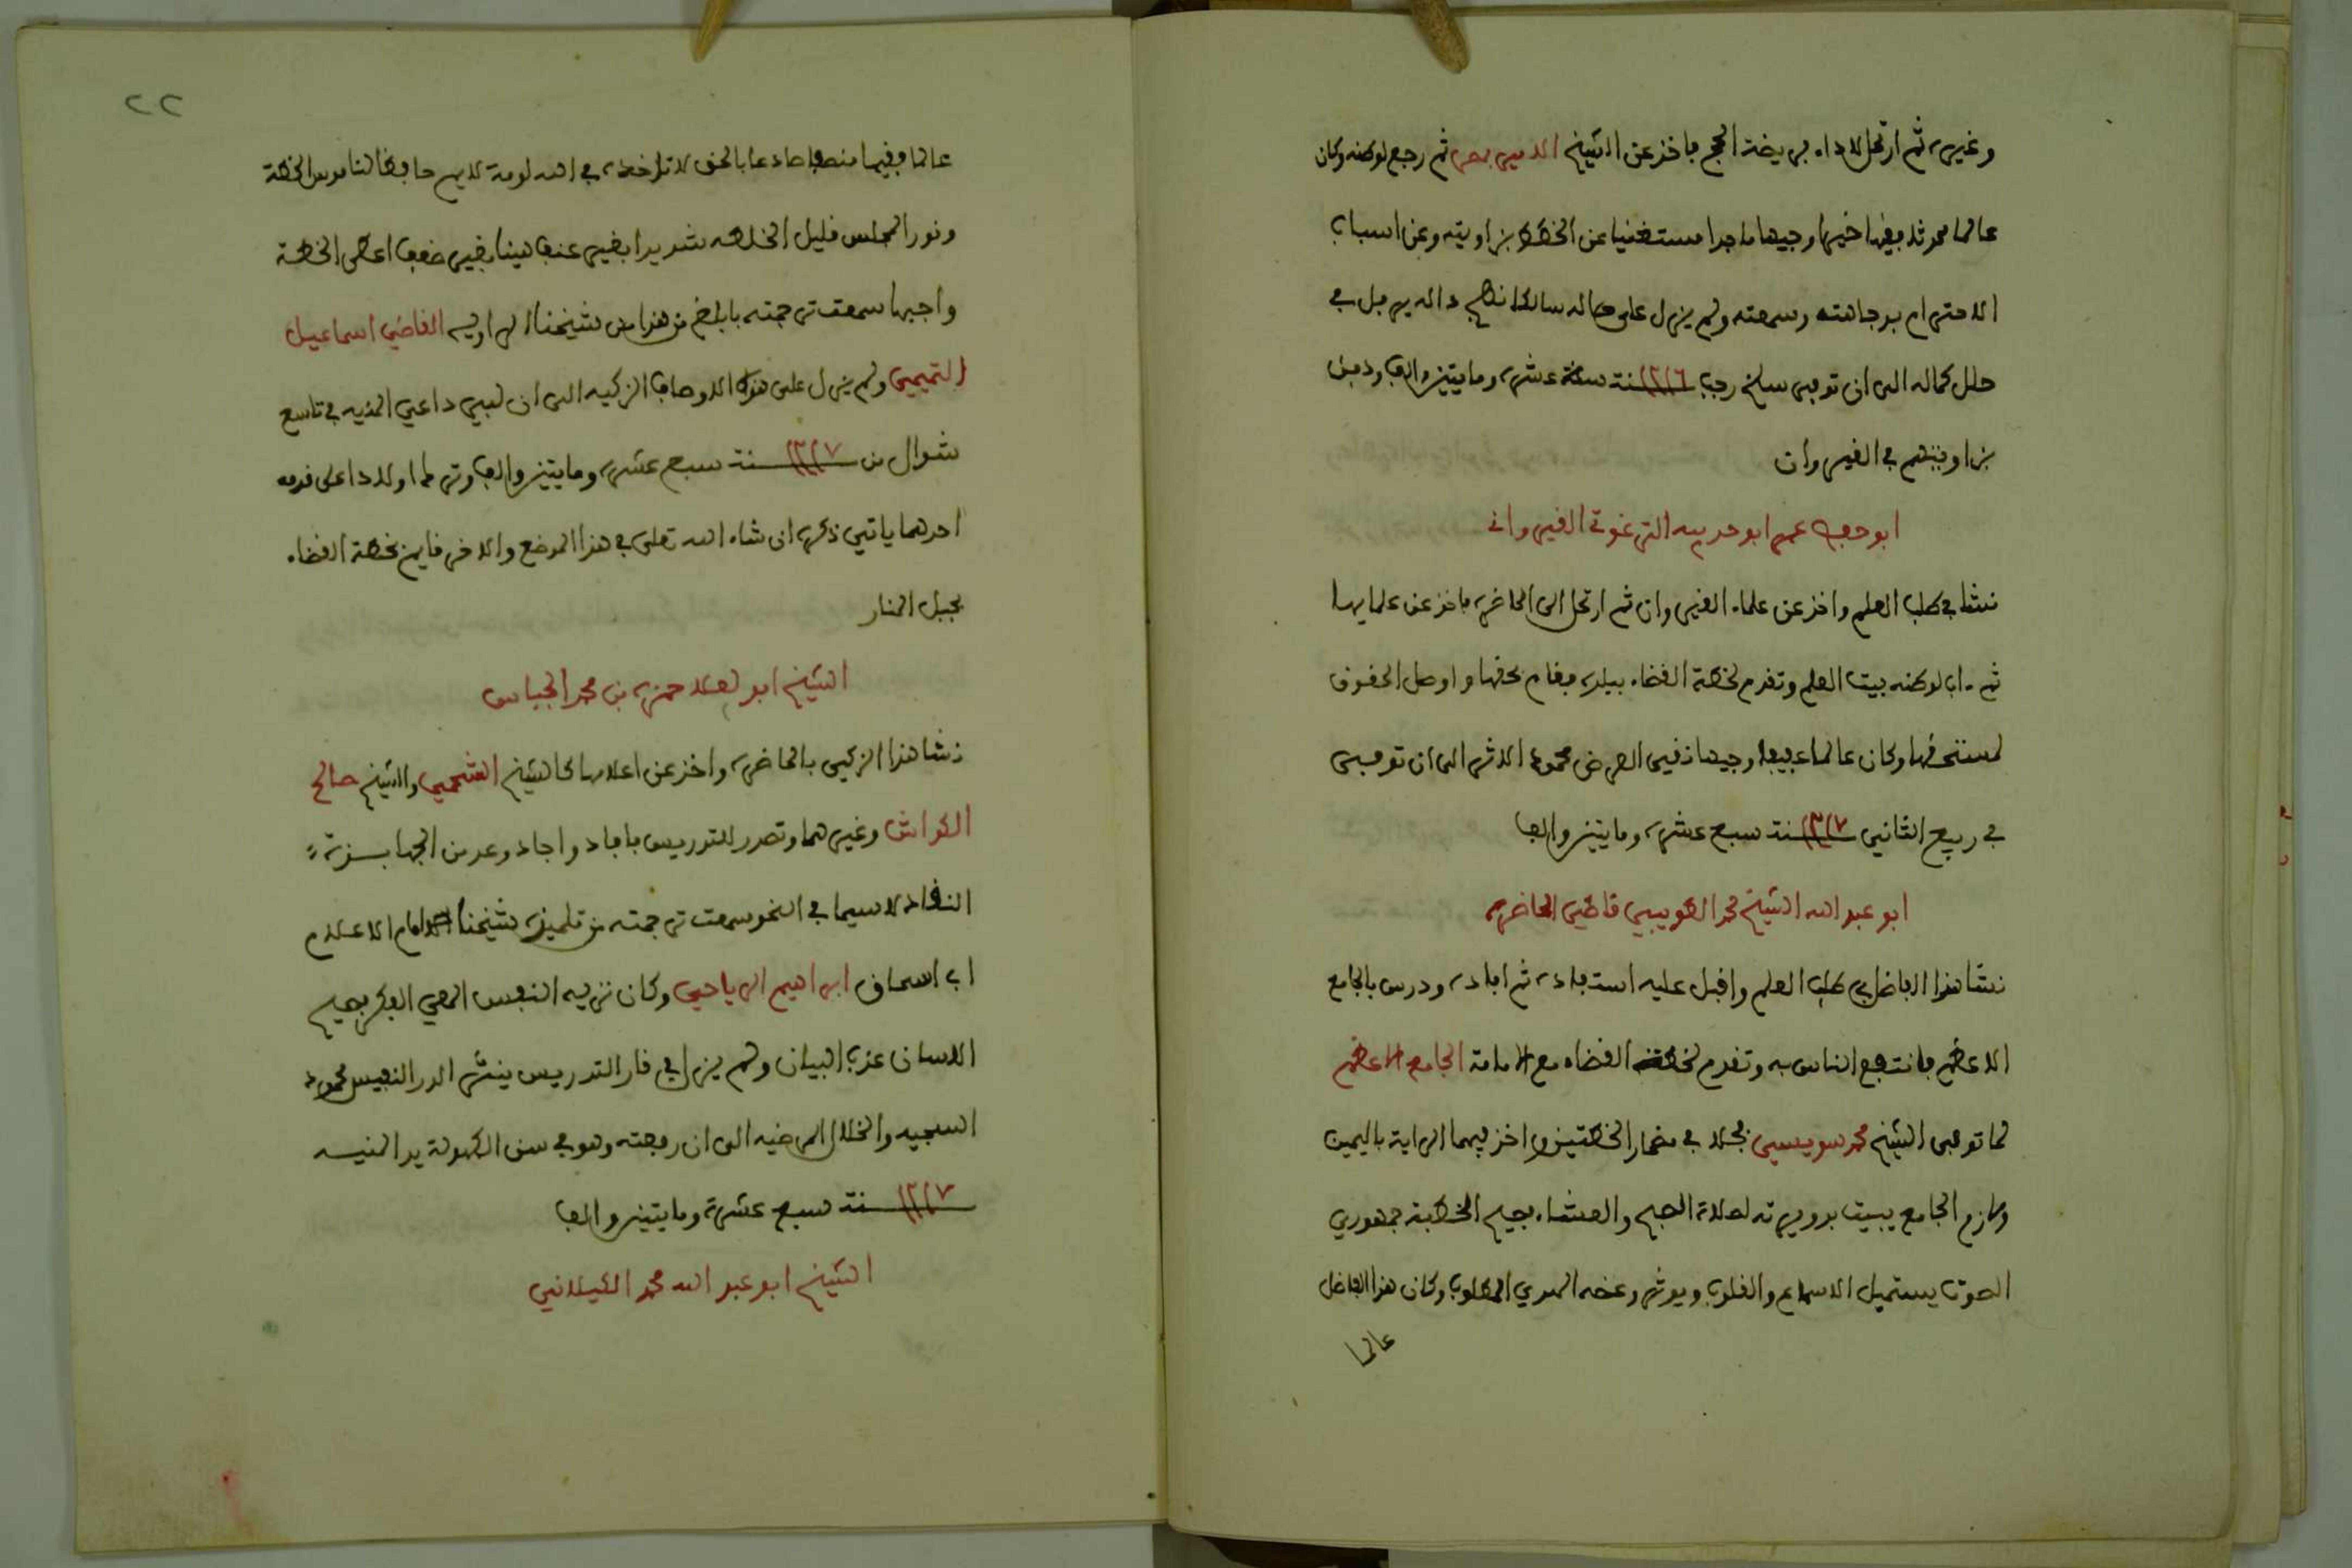 وغيره ثم ارتحل لاداء فريضة الحج فاخذ عن الشيخ الامير بمصر ثم رجع لوطنه وكان
عالما محدثا فقيها خيرا وجيها ماجدا مستغنيا عن الخطط بزاويته وعن اسباب
الاحترام بوجاهته وسمعته ولم يزل على حاله سالكا نهج داله يرفل في
حلل كماله الى ان توفي سلخ رجب ١٢١٦ سنة ستة عشرة ومايتين والف ودفن
بزاويتهم في القيروان
ابو حفص عمر ابو حديبه الترغوتي القيرواني
نشا في طلب العلم واخذ عن علماء القيروان ثم ارتحل الى الحاضرة فاخذ عن علمايها
ثم ءاب لوطنه ببيت العلم وتقدم لخطة القضاء ببلده فقام بحقها واوصل الحقوق
لمستحقها وكان عالما عفيفا وجيها نقي العرض محمود الاثر الى ان توفي
في ربيع الثاني ١٢١٧ سنة سبع عشرة ومايتين والف
ابو عبد الله الشيخ محمد الطويبي قاضي الحاضرة
نشا هذا الفاضل في طلب العلم واقبل عليه استفاده ثم افاده ودرس بالجامع
الاعظم فانتفع الناس به وتقدم لخطة القضاء مع امامة الجامع الاعظم
لما توفي الشيخ محمد سويسي فجلا في مضمار الخطتين واخذ فيهما الراية باليمين
ولازم الجامع يبيت بدويرته لصلاة الصبح والعشاء فصيح الخطبة جمهوري
الصوت يستميل الاسماع والقلوب ويوثر وعظه المهدي المطلوب وكان هذا الفاضل
عالما
٢٢
عالما فقيها منصفا صادعا بالحق لا تاخذه في الله لومة لايم حافظا لناموس الخطة
ونور المجلس قليل الخلطه شديدا بغير عنف لينا بغير ضعف اعطى الخطة
واجبها سمعت ترجمته بابلغ من هذا من شيخنا الراويه القاضي اسماعيل
التميمي ولم يزل على هذه الاوصاف الزكيه الى ان لبى داعي المنيه في تاسع
شوال من ١٢١٧ سنة سبع عشرة ومايتين والف وترك اولادا على قدمه
احدهما ياتي ذكره ان شاء الله تعلى في هذا الموضع والاخر قايم بخطة القضاء
بجبل المنار
الشيخ ابو يعلا حمزة بن محمد الجباس
نشا هذا الزكي بالحاضرة واخذ عن اعلامها كالشيخ الشحمي والشيخ صالح
الكواش وغيرهما وتصدر للتدريس فافاد واجاد وعد من الجهابذة
النقاد لا سيما في النحو سمعت ترجمته من تلميذه شيخنا امام الاعلام
اب اسحاق ابراهيم الرياحي وكان نزيه النفس المعي الفكر فصيح
اللسان عذب البيان ولم يزل في قار التدريس ينثر الدر النفيس محمود
السجيه والخلال المرضيه الى ان رمقته وهو في سن الكهولة يد المنيه
١٢١٧ سنة سبع عشرة ومايتين والف
الشيخ ابو عبد الله محمد الكيلاني